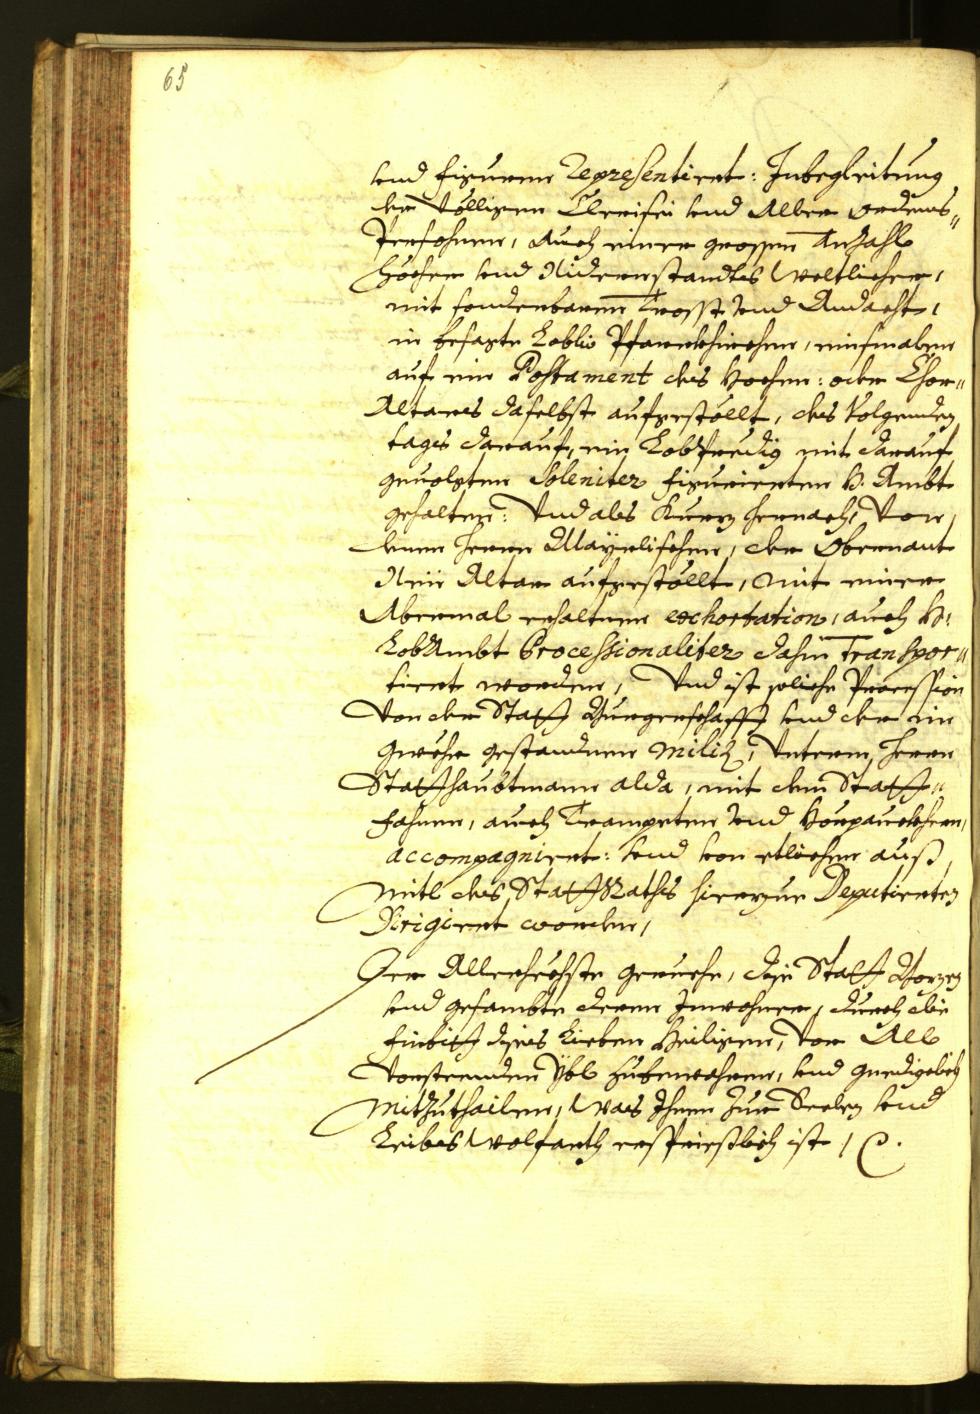 65
vnd figuren representiert: Inbegleitung
der völligen Clerisei vnd Aller ordens-
Persohnen, auch einer grossen Anzahl
Hocher vnd Nidernstandtes Weltlicher,
mit sonderbaren Trosst vnd Andacht,
in besagte Lobliche Pfarrkhirchen, einsmalen
auf ein Postament des Hochen: oder Chor-
Altares daselbst aufgestöllt, des volgenden
tags darauf, ein Lobpredig mit darauf
gevolgten Soleniter figurierten H: Ambt
gehalten: Vnd als kurz hernach, von
denen Herrn Mayrlischen, der Obernant
Neie Altar aufgestöllt, mit einer
Abermal gehaltnen exhortation, auch H:
LobAmbt Processionaliter dahin transpor-
tiert worden, Vnd ist soliche Procession
von der Statt Burgerschafft vnd der im
gwöhr gestandnen Miliz, Vnterm Herrn
Statthaubtmann alda, mit dem Statt-
fahnen, auch Trompeten vnd Hörpauckhen,
accompagniert: vnd von etlichen auß
mitl des StattRaths hierzue Deputierten
Dirigiert worden,
Der Allerhöchste geruehe, dise Statt Bozen
vnd gesambte deren Inwohner, durch die
fürbitt dises Lieben Heiligen, vor All
vorstehenden Ybl zubewahren, vnd gnedigelich
Mitzuthailen, Was Ihnen Zur Seelen vnd
Leibes Wolfarth ersprießlich ist, etc.